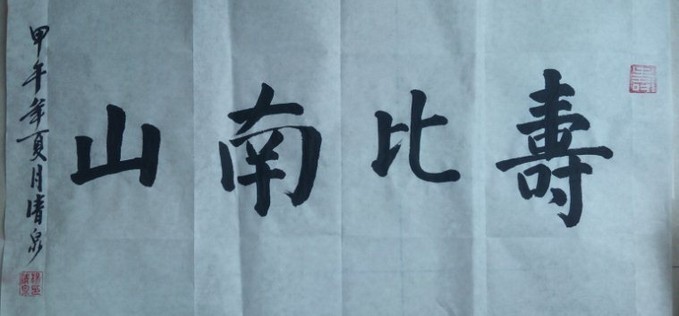 壽比南山
甲午年夏月清泉